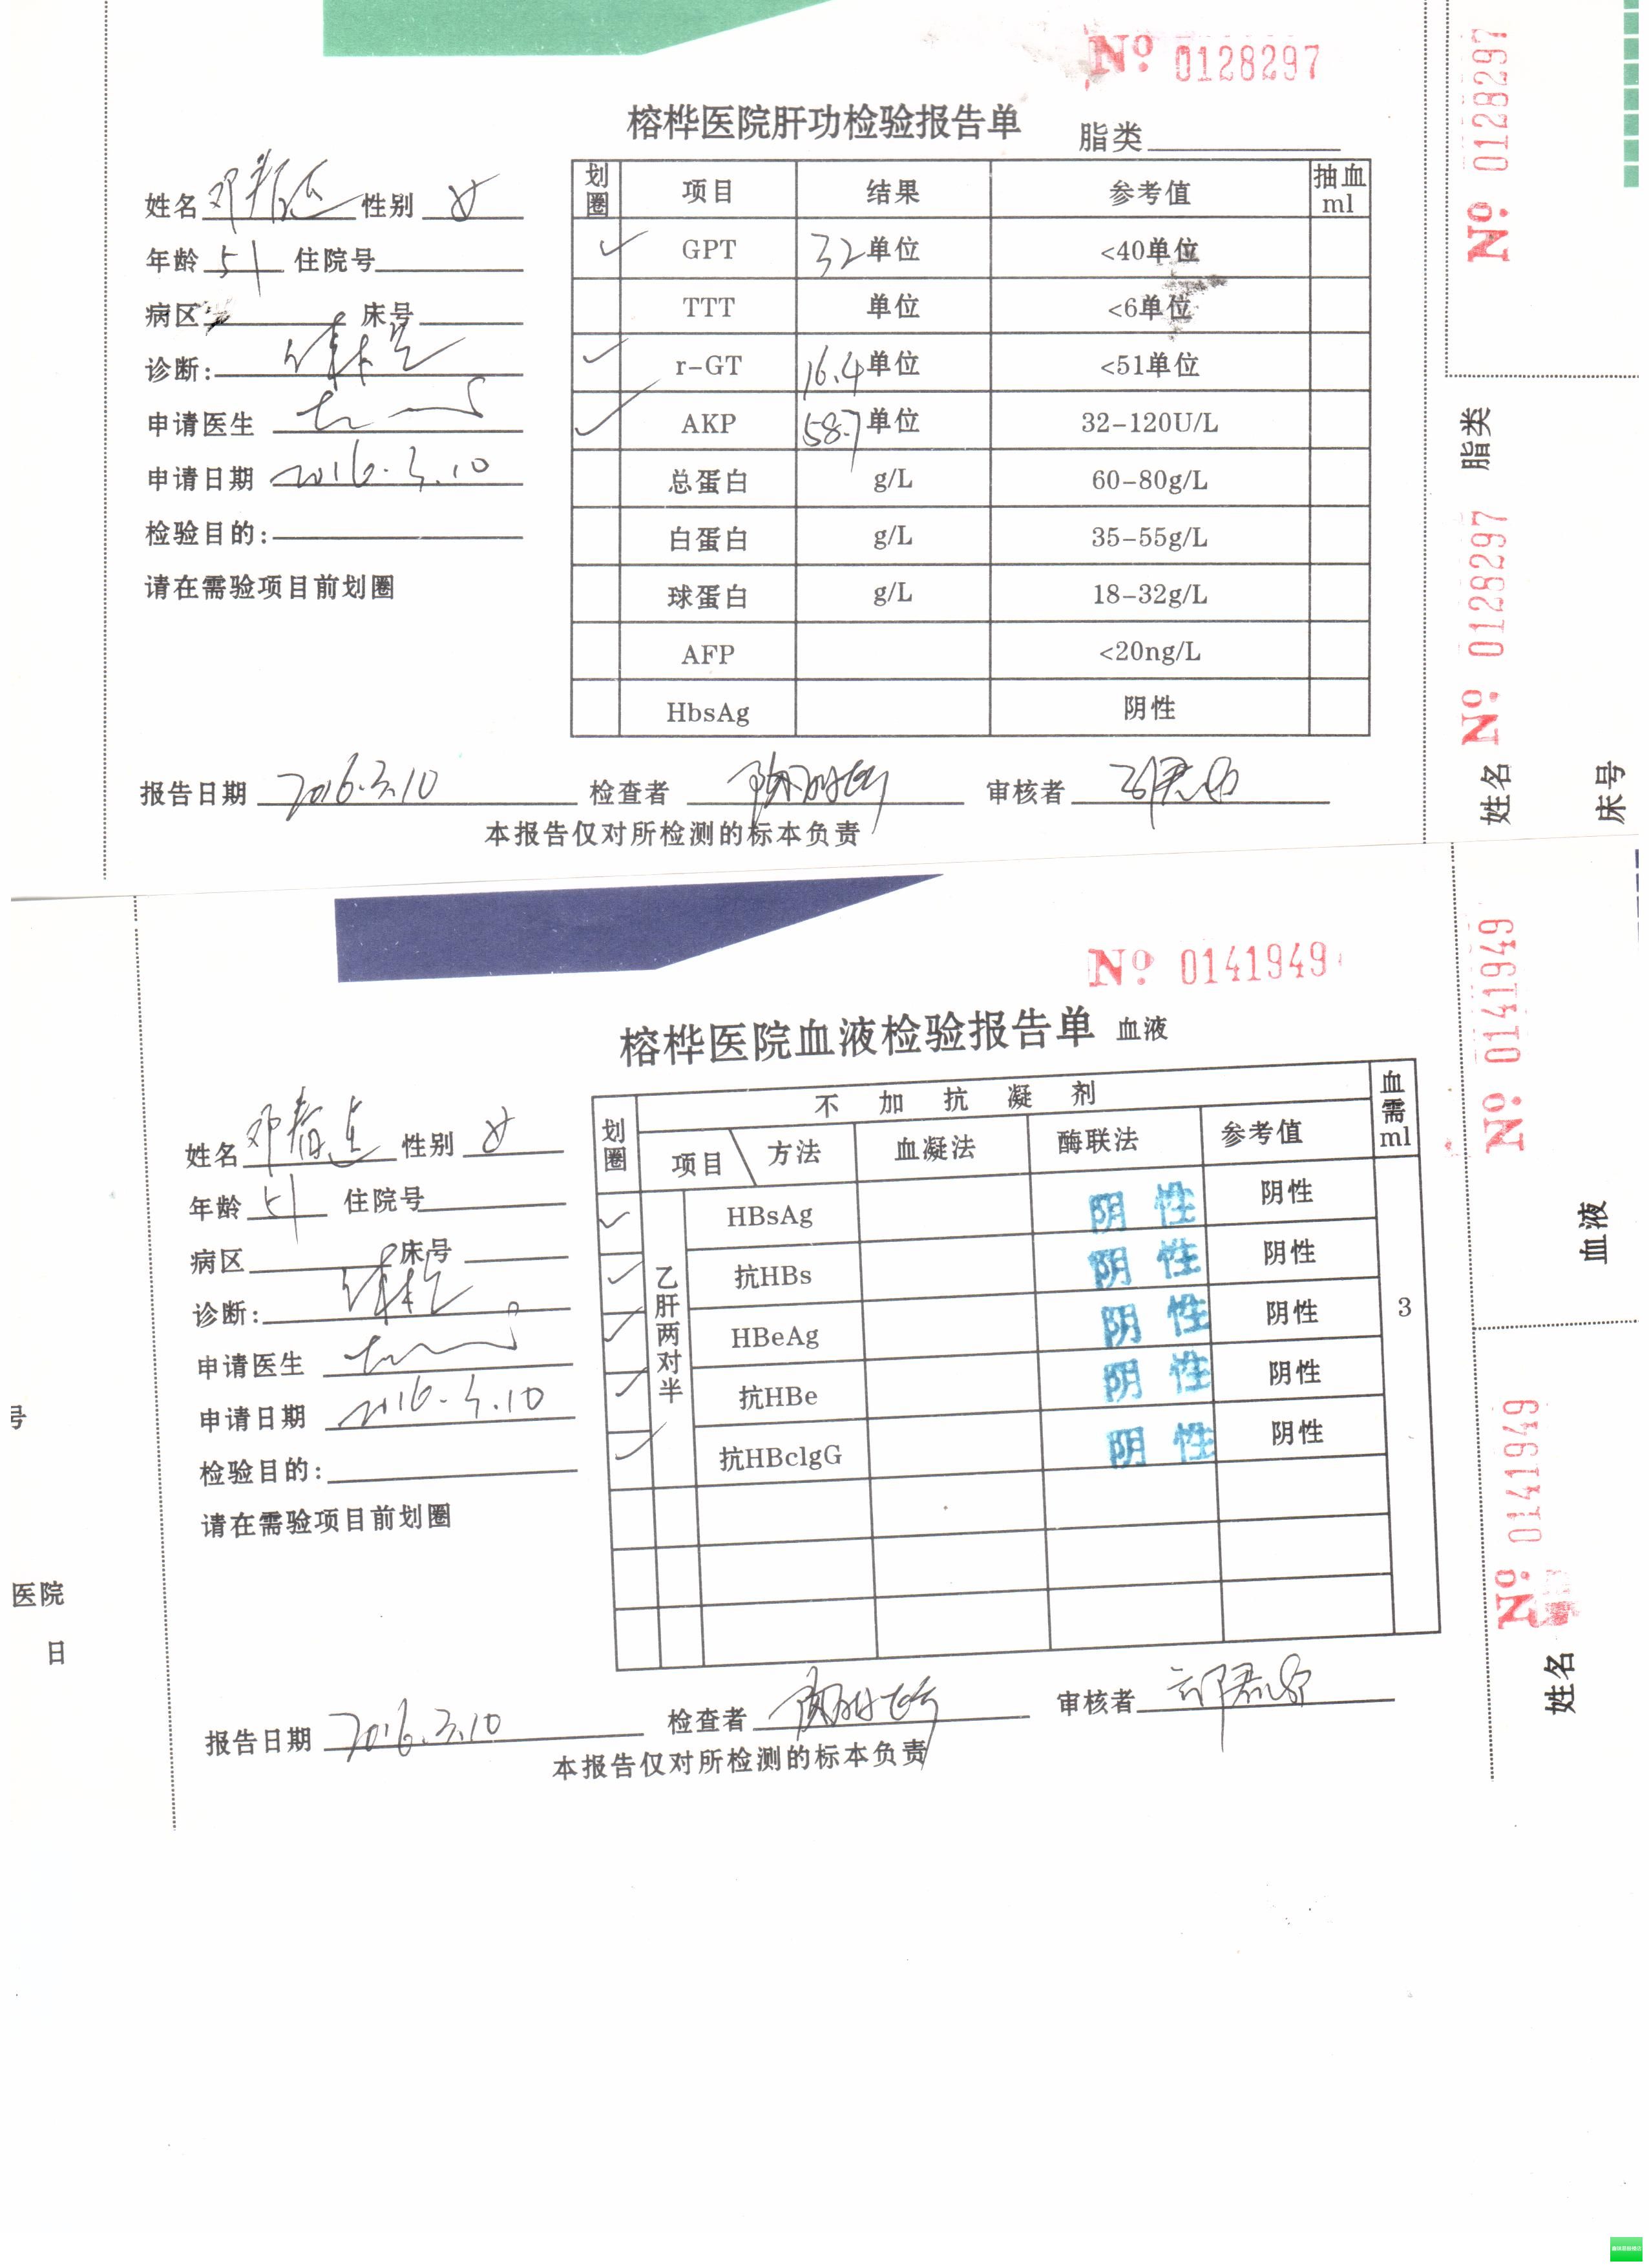 No. 0128297
榕桦医院肝功检验报告单 脂类
姓名 邓 性别 女
年龄 51 住院号
病区 床号
诊断: 健检
申请医生
申请日期 2016.3.10
检验目的:
请在需验项目前划圈
划圈 项目 结果 参考值 抽血ml
✓ GPT 32单位 <40单位
TTT 单位 <6单位
✓ r-GT 16.4单位 <51单位
✓ AKP 58.7单位 32-120U/L
总蛋白 g/L 60-80g/L
白蛋白 g/L 35-55g/L
球蛋白 g/L 18-32g/L
AFP <20ng/L
HbsAg 阴性
报告日期 2016.3.10 检查者 审核者
本报告仅对所检测的标本负责
No. 0128297
脂类
No. 0128297
姓名
床号
No. 0141949
榕桦医院血液检验报告单 血液
姓名 邓春 性别 女
年龄 51 住院号
病区 床号
诊断: 健检
申请医生
申请日期 2016.3.10
检验目的:
请在需验项目前划圈
划圈 不加抗凝剂 血需ml
项目 方法 血凝法 酶联法 参考值
乙肝两对半
✓ HBsAg 阴性 阴性
✓ 抗HBs 阴性 阴性
✓ HBeAg 阴性 阴性
✓ 抗HBe 阴性 阴性
✓ 抗HBclgG 阴性 阴性
3
报告日期 2016.3.10 检查者 审核者
本报告仅对所检测的标本负责
No. 0141949
血液
No. 0141949
姓名
号
医院
日